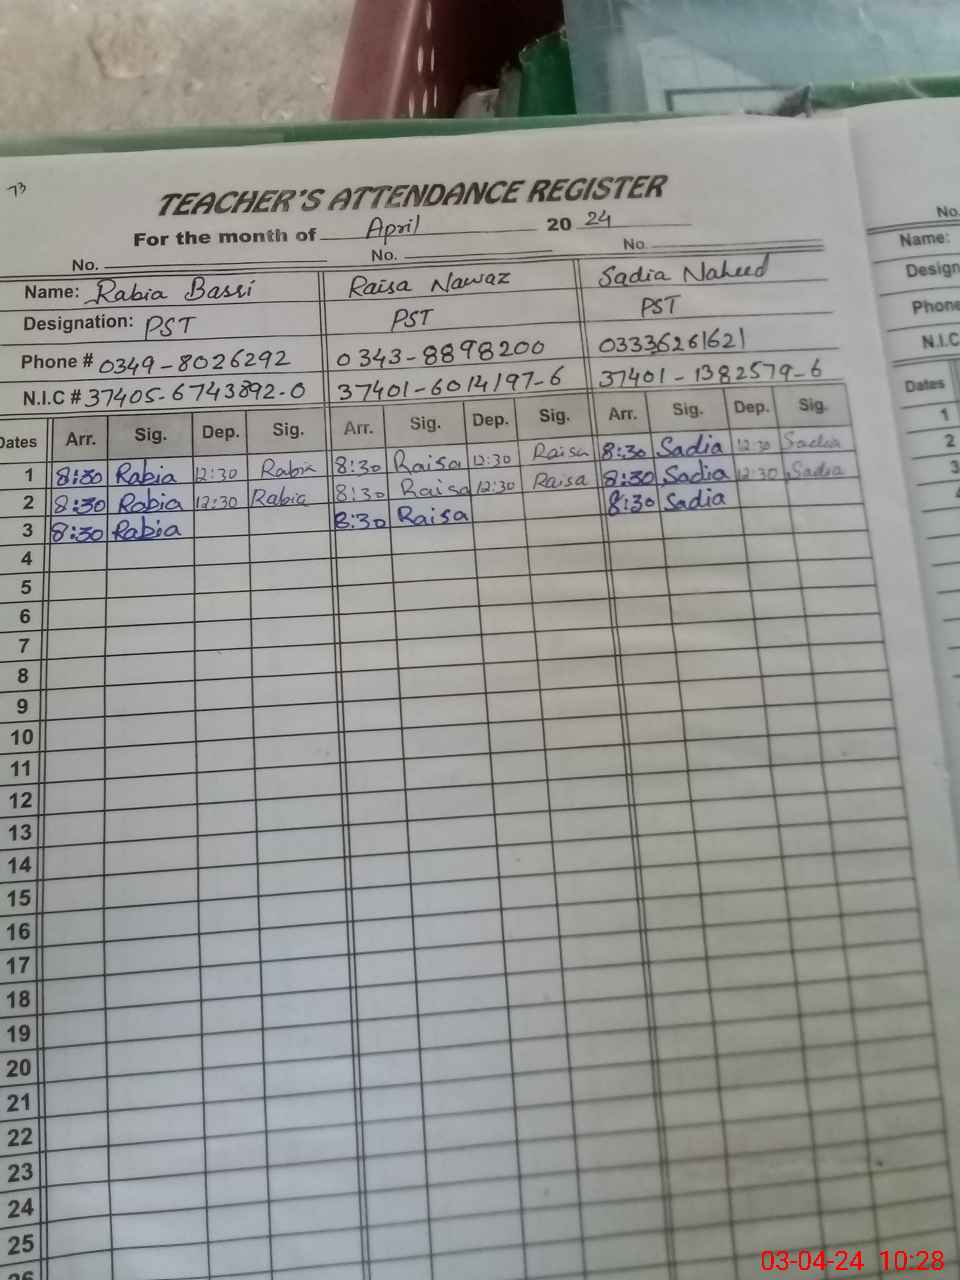 73
TEACHER'S ATTENDANCE REGISTER
For the month of April 2024
No. No. No.
Name: Rabia Bassi Raisa Nawaz Sadia Naheed
Designation: PST PST PST
Phone # 0349-8026292 0343-8898200 03336261621
N.I.C # 37405-6743892-0 37401-6014197-6 37401-1382579-6
Dates Arr. Sig. Dep. Sig. Arr. Sig. Dep. Sig. Arr. Sig. Dep. Sig.
1 8:30 Rabia 12:30 Rabia 8:30 Raisa 12:30 Raisa 8:30 Sadia 12:30 Sadia
2 8:30 Rabia 12:30 Rabia 8:30 Raisa 12:30 Raisa 8:30 Sadia 12:30 Sadia
3 8:30 Rabia 8:30 Raisa 8:30 Sadia
4
5
6
7
8
9
10
11
12
13
14
15
16
17
18
19
20
21
22
23
24
25
26
No.
Name:
Design
Phone
N.I.C
Dates
1
2
3
03-04-24 10:28